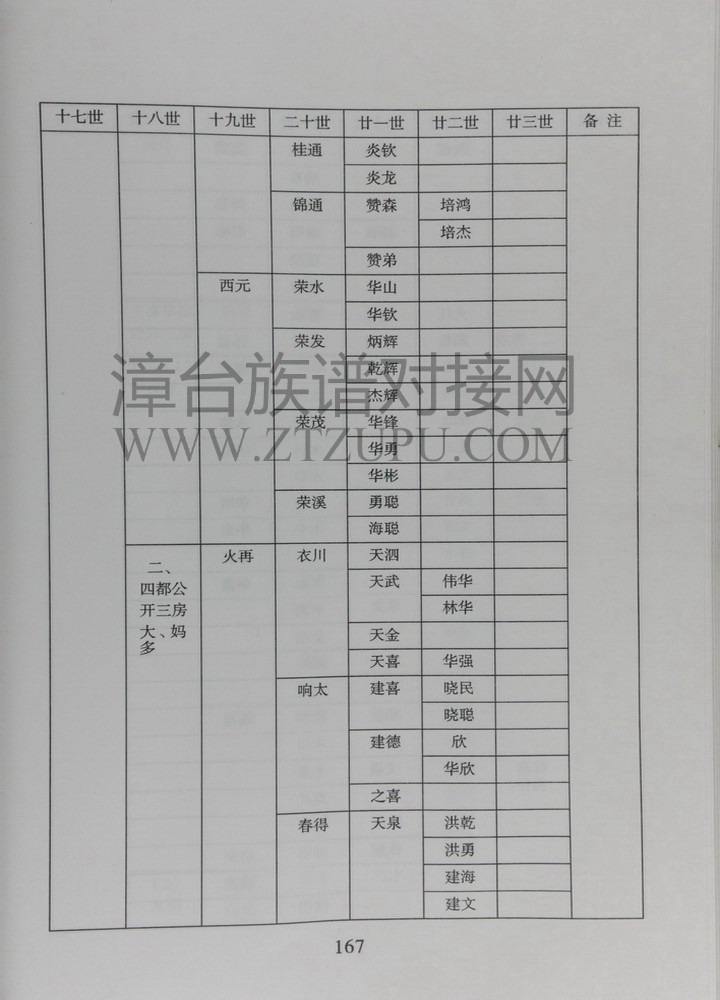 十七世 十八世 十九世 二十世 廿一世 廿二世 廿三世 备 注
桂通 炎钦
炎龙
锦通 赞森 培鸿
培杰
赞弟
西元 荣水 华山
华钦
荣发 炳辉
乾辉
漳台族谱对接网
杰辉
荣茂 华锋
WWW.ZTZUPU.COM
华勇
华彬
荣溪 勇聪
海聪
二、 火再 衣川 天泗
四都公 天武 伟华
开三房 林华
大、妈 天金
多 天喜 华强
响太 建喜 晓民
晓聪
建德 欣
华欣
之喜
春得 天泉 洪乾
洪勇
建海
建文
167